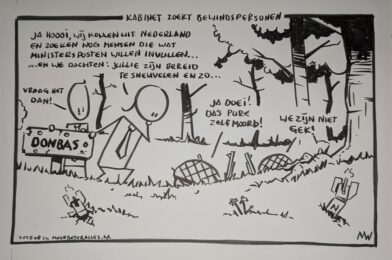 KABINET ZOEKT BEWINDSPERSONEN
JA HOOOI, WIJ KOMEN UIT NEDERLAND
EN ZOEKEN NOG MENSEN DIE WAT
MINISTERSPOSTEN WILLEN INVULLEN...
...EN WE DACHTEN: JULLIE ZIJN BEREID
TE SNEUVELEN EN ZO...
VRAAG HET
DAN!
JA DOEI!
DA'S PURE
ZELFMOORD!
WE ZIJN NIET
GEK!
DONBAS
MW